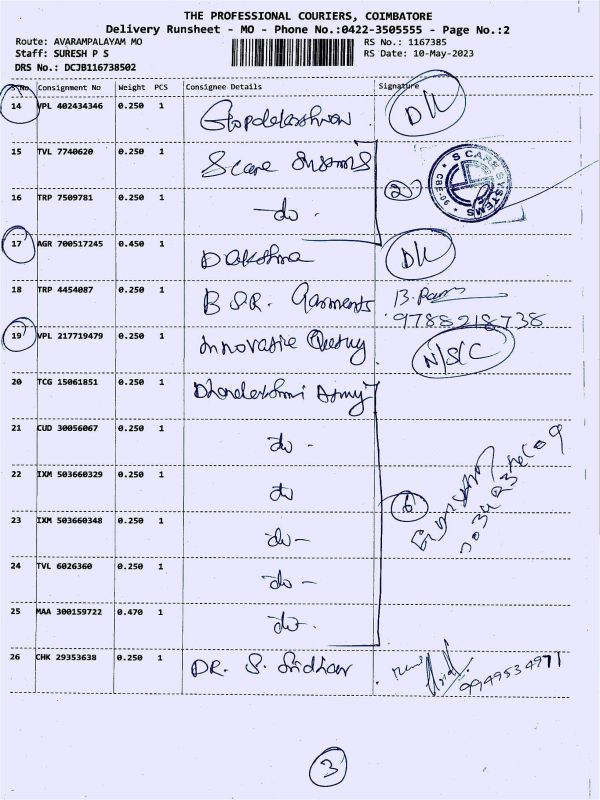 THE PROFESSIONAL COURIERS, COIMBATORE
Delivery Runsheet - MO - Phone No.:0422-3505555 - Page No.:2
Route: AVARAMPALAYAM MO
RS No.: 1167385
Staff: SURESH P S
RS Date: 10-May-2023
DRS No.: DCJB116738502
S.No Consignment No Weight PCS Consignee Details Signature
14 VPL 402434346 0.250 1 D/L
15 TVL 7740620 0.250 1 S care Systems
S CARE SYSTEMS
2
16 TRP 7509781 0.250 1 do
17 AGR 700517245 0.450 1 Dakshna D/L
18 TRP 4454087 0.250 1 B S.R. Garments
9788218738
19 VPL 217719479 0.250 1 Innovative N/S/C
20 TCG 15061851 0.250 1
21 CUD 30056067 0.250 1 do -
22 IXM 503660329 0.250 1 do
6
23 IXM 503660348 0.250 1 do -
24 TVL 6026360 0.250 1 do -
25 MAA 300159722 0.470 1 do -
26 CHK 29353638 0.250 1 DR. S. Sridhar
9949534971
3